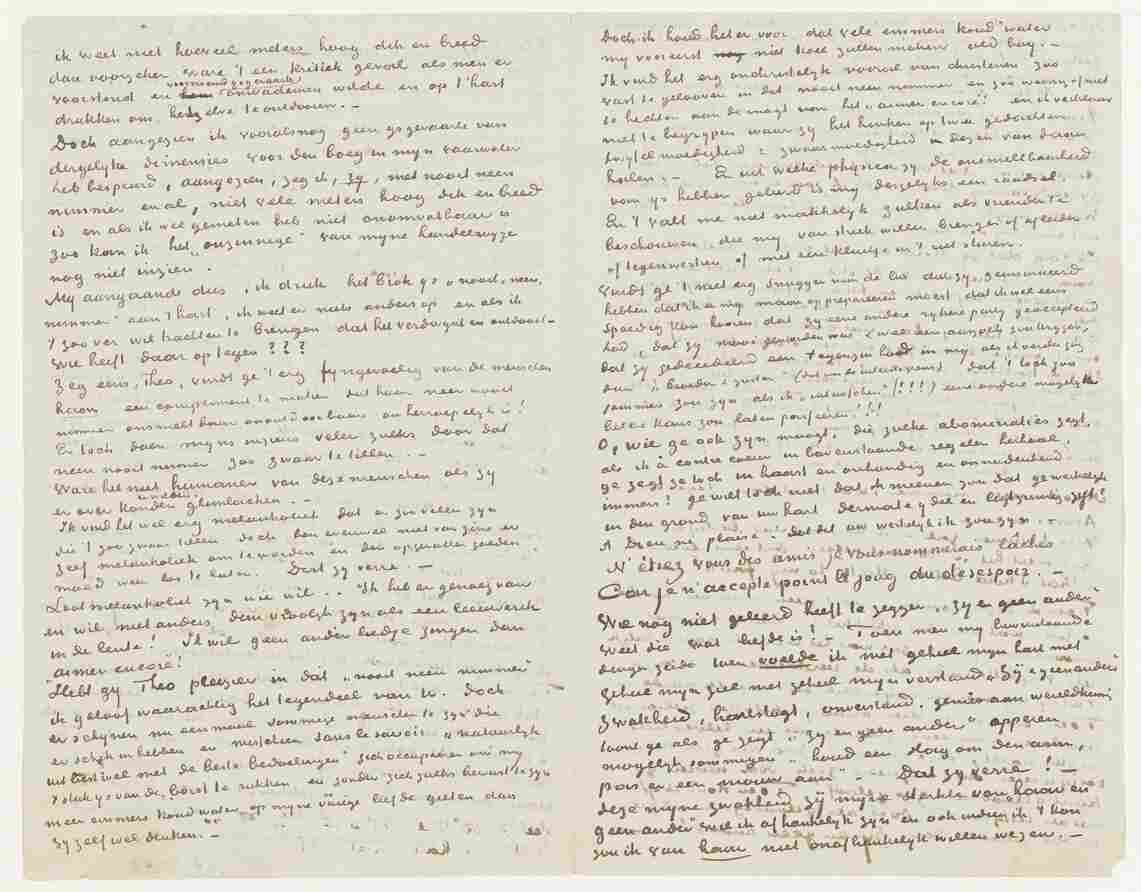 ik weet niet hoeveel meters hoog dik en breed
dan voorzeker ware 't een kritiek geval als men er
voorstond en voornoemd ysgevaarte omvademen wilde en op 't hart
drukken om hetzelve te ontdooien. –
Doch aangezien ik vooralsnog geen ysgevaarte van
dergelyke dimensies voor den boeg en myn vaarwater
heb bespeurd, aangezien, zeg ik, zy, met nooit neen
nimmer en al, niet vele meters hoog dik en breed
is en als ik wel gemeten heb niet onomvatbaar is
zoo kan ik het "onzinnige" van myne handelwyze
nog niet inzien".
My aangaande dus, ik druk het "blok ys" nooit, neen,
nimmer" aan 't hart, ik weet er niets anders op en als ik
't zoo ver wil trachten te brengen dat het verdwynt en ontdooit –
wie heeft daar op tegen???
Zeg eens, Theo, vindt ge 't erg fyngevoelig van de menschen
haar een compliment te maken dat haar neen nooit
nimmer onsmeltbaar onontdooibaar onherroepelyk is!
En toch doen myns inziens velen zulks door dat
neen nooit nimmer zoo zwaar te tillen. –
Ware het niet humaner van deze menschen als zy
er over konden glimlachen. –
Ik vind het wel erg melankoliek dat er zoo velen zyn
die 't zoo zwaar tillen doch ben evenwel niet van zins er
zelf melankoliek om te worden en den opgevatten goeden
moed weer los te laten. Dat zy verre. –
Laat melankoliek zyn wie wil. . . Ik heb er genoeg van
en wil niet anders dan vroolyk zyn als een leeuwerik
in de lente! Ik wil geen ander liedje zingen dan
aimer encore!
Hebt gy Theo pleizier in dat "nooit neen nimmer"
ik geloof waarachtig het tegendeel van U. Doch
er schynen nu eenmaal sommige menschen te zyn die
er schik in hebben en misschien sans le savoir "natuurlyk
uit bestwil met de beste bedoelingen" zich occuperen om my
't stuk ys van de borst te rukken en zonder zich zulks bewust te zyn
meer emmers koud water op myne vurige liefde gieten dan
zy zelf wel denken. –
Doch ik houd het er voor dat vele emmers koud water
my vooreerst niet koel zullen maken oud boy. –
Ik vind het erg ondristelyk vooral van christenen zoo
vast te gelooven in dat nooit neen nimmer en zoo weinig of niet
te hechten aan de magt van het "aimer encore!" en ik verklaar
niet te begrypen waar zy het hinken op twee gedachten
twyfelmoedigheid & zwaarmoedigheid
halen. – En uit welke physica zy de onsmeltbaarheid
van ys hebben geleerd is my desgelyks een raadsel.
En 't valt me niet makkelyk zulken als vrienden te
beschouwen die my van streek willen brengen of afleiden
of tegenwerken of met een kluitje in 't riet sturen.
Vindt ge 't niet erg snugger van de lui dat zy geinsinueerd
hebben dat ik er my maar op prepareeren moest dat ik wel eens
spoedig kon hooren dat zy eene andere rykere party geaccepteerd
had, dat zy mooi geworden was & wel ten huwelyk zou krygen,
dat zy gedecideerd een tegenzin had in my als ik verder ging
dan "broeder & zuster" (dat was de uiterste grens) dat 't toch zoo
jammer zou zyn als ik "intusschen" (!!!) eene andere mogelyke
betere kans zou laten passeeren!!!
O, wie ge ook zyn moogt, die zulke abominaties zegt,
als ik à contre coeur in bovenstaande regelen herhaal,
ge zegt ze toch in haast en onhandig en onnadenkend
immers! ge wilt toch niet dat ik meenen zou dat ge werkelyk
in den grond van uw hart dermate
A Dieu ne plaise dat dit uw werkelyk ik zou zyn. –
N'étiez vous des amis je vous nommerais lâches
Car je n'accepte point le joug du désespoir. –
Wie nog niet geleerd heeft te zeggen, "zy en geen ander"
weet die wat liefde is! – Toen men my bovenstaande
dingen zeide toen voelde ik met geheel myn hart met
geheel myn ziel met geheel myn verstand "Zy & geen ander".
Zwakheid, hartstogt, onverstand, gemis aan wereldkennis
toont ge als ge zegt "zy en geen ander" opperen
mogelyk sommigen "houd een slag om den arm,
pas er een mouw aan". Dat zy verre! –
deze myne zwakheid zy myne sterkte van haar en
"geen ander" wil ik afhankelyk zyn en ook indien ik 't kon
zou ik van haar niet onafhankelyk willen wezen. –